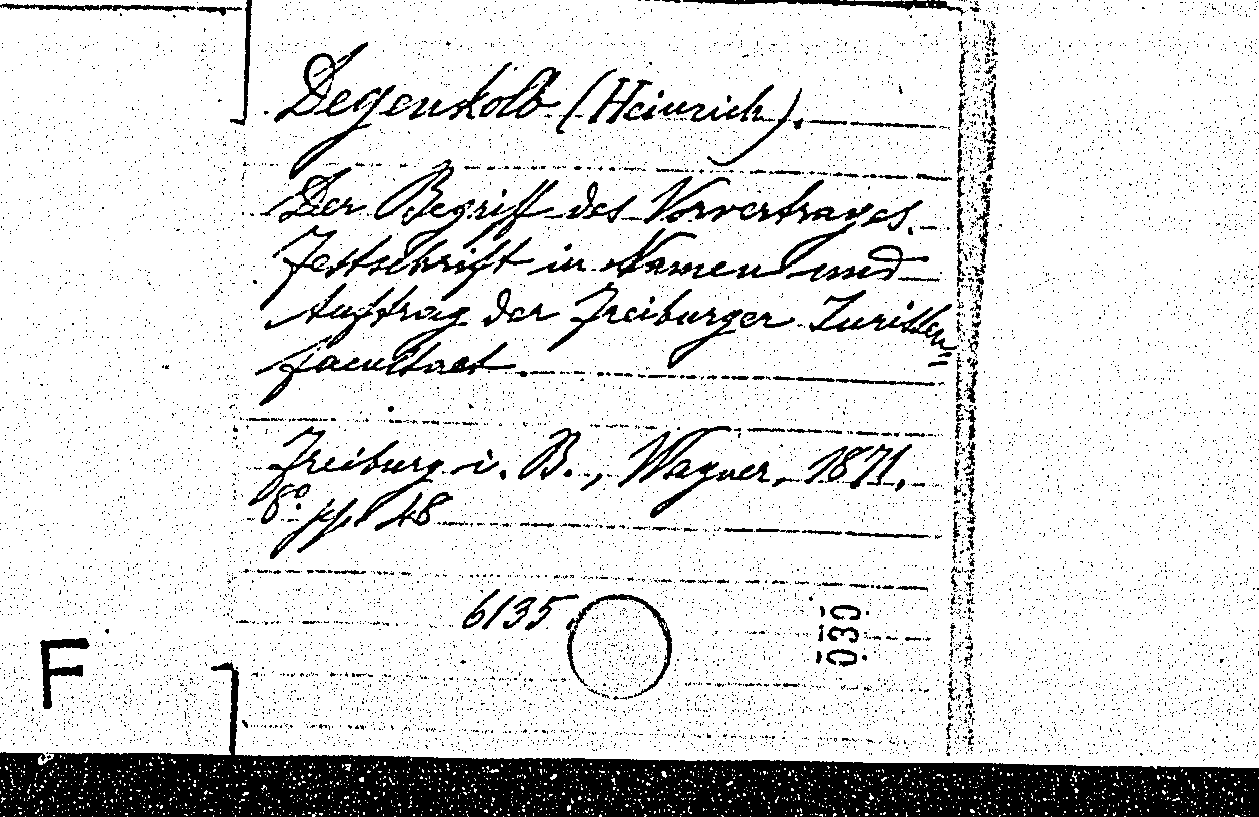 Degenkolb (Heinrich).
Der Begriff des Vorvertrages.
Festschrift in Namen und
Auftrag der Freiburger Juristen=
facultaet.
Freiburg i. B., Wagner, 1871.
8º. pp. 48
6135.
030
F